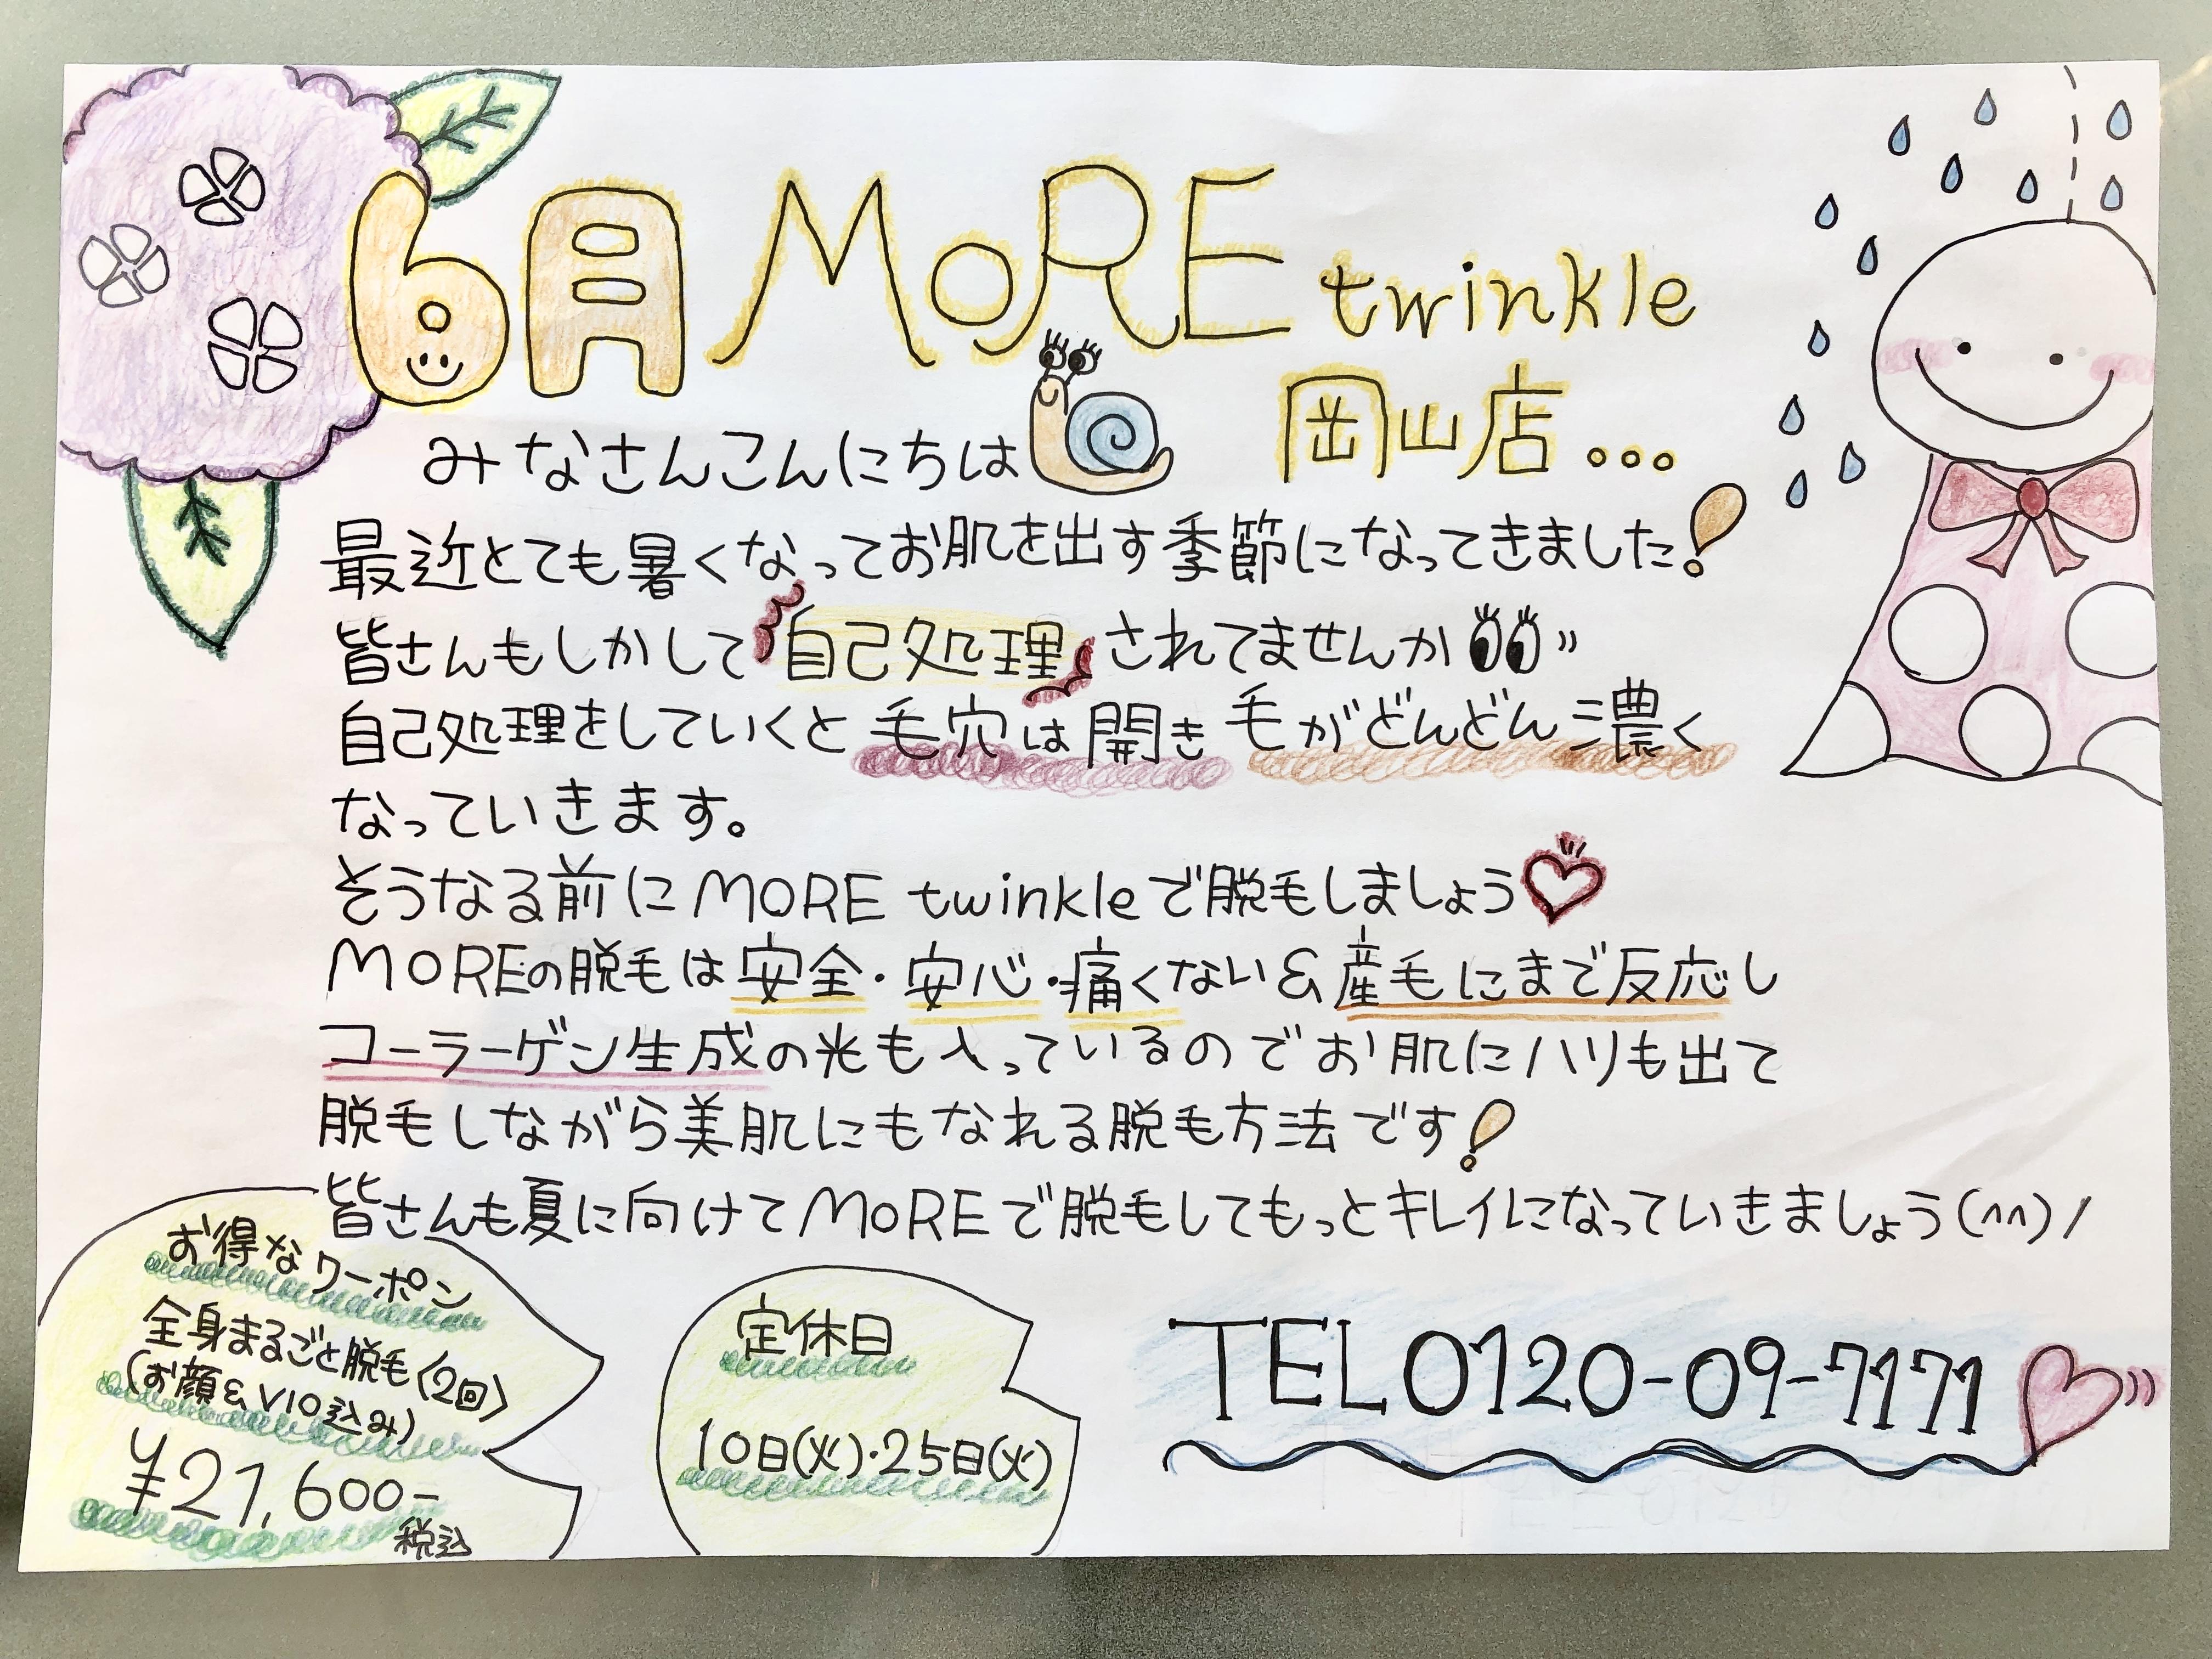 6月 MoRE twinkle
岡山店...
みなさんこんにちは
最近とても暑くなってお肌を出す季節になってきました!
皆さんもしかして自己処理されてませんか
自己処理をしていくと毛穴は開き毛がどんどん濃く
なっていきます。
そうなる前にMORE twinkleで脱毛しましょう♡
MOREの脱毛は安全・安心・痛くない&産毛にまで反応し
コーラーゲン生成の光も入っているのでお肌にハリも出て
脱毛しながら美肌にもなれる脱毛方法です!
皆さんも夏に向けてMoREで脱毛してもっとキレイになっていきましょう(^^)/
お得なクーポン
全身まるごと脱毛〈2回〉
(お顔&VIO込み)
¥21,600-
税込
定休日
10日(火)・25日(火)
TEL0120-09-7171